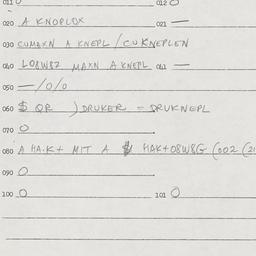 011 0 012 0
020 A KNOPLOX 021 —
030 CUMAXN A KNEPL / CUKNEPLEN
040 LO8W8Z MAXN A KNEPL 041 —
050 — /0/0
060 $ QR ) DRUKER = DRUKNEPL
070 0
080 A HA.K+ MIT A $ HAK+08W8G (002 (2
090 0
100 0 101 0